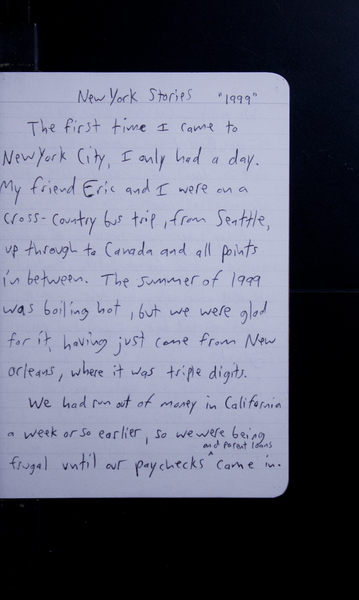 New York Stories "1999"
The first time I came to
New York City, I only had a day.
My friend Eric and I were on a
cross-country bus trip, from Seattle,
up through to Canada and all points
in between. The summer of 1999
was boiling hot, but we were glad
for it, having just come from New
Orleans, where it was triple digits.
We had run out of money in California
a week or so earlier, so we were being
and parent loans
frugal until our paychecks ^ came in.